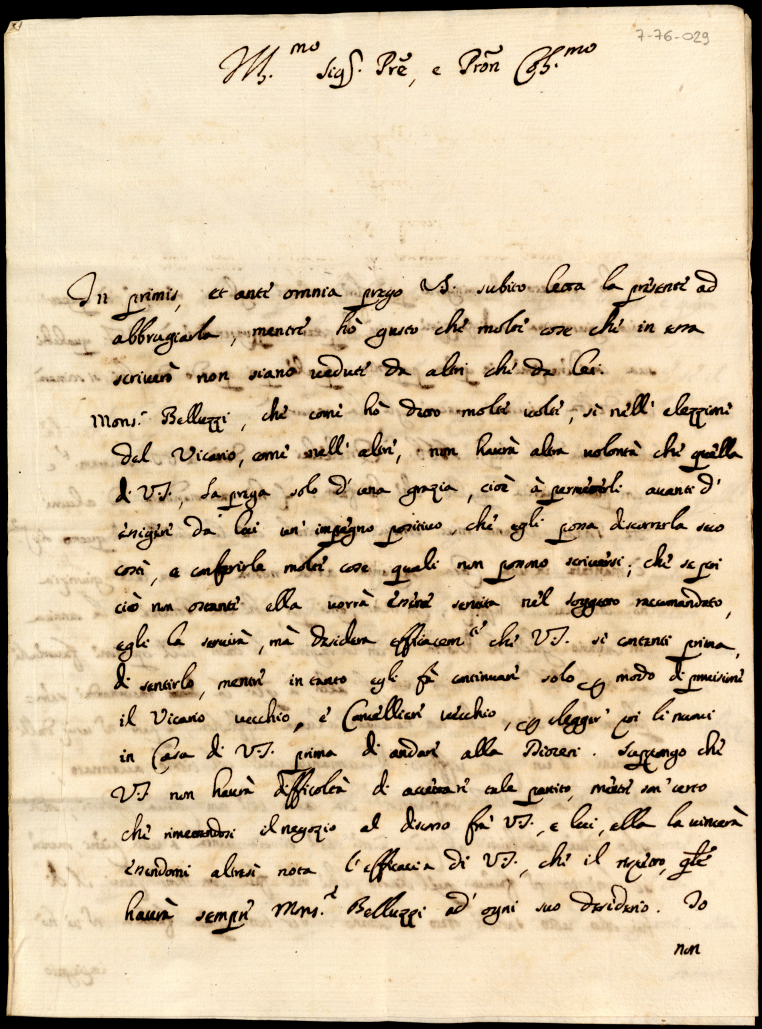 7-76-029
Ill.mo Sig.r Prē, e Prōn Col.mo
In primis, et ante omnia prego V.S. subito letta la presente ad
abbrugiarla, mentre hò gusto che molte cose che in essa
scriverò non siano vedute da altri che da lei.
Mons.r Belluzzi, che come hò detto molte volte, sì nell'elezzione
del Vicario, come nell'altre, non haverà altra volontà che quella
di V.S., la prega solo d'una grazia, cioè à permetterli avanti d'
esigere da lei un'impegno positivo, che egli possa discorrerla seco
costì, e conferirle molte cose quali non possono scriversi, che se poi
ciò non ostante ella vorrà essere servita nel soggetto raccomandato,
egli la servirà, mà desidera efficacem.te che V.S. si contenti prima
di sentirlo, mentre in tanto egli fà continuare solo per modo di provisione
il Vicario vecchio, e Cancelliere vecchio, per elegger poi li nuovi
in Casa di V.S. prima di andare alla Diocesi. Suppongo che
V.S. non haverà difficoltà di accettare tale partito, mentre son certo
che rimettendosi il negozio al discorso frà V.S., e lui, ella la vincerà
essendomi altresì nota l'efficacia di V.S., che il rispetto, q̄le
haverà sempre Mons.r Belluzzi ad ogni suo desiderio. Io
non